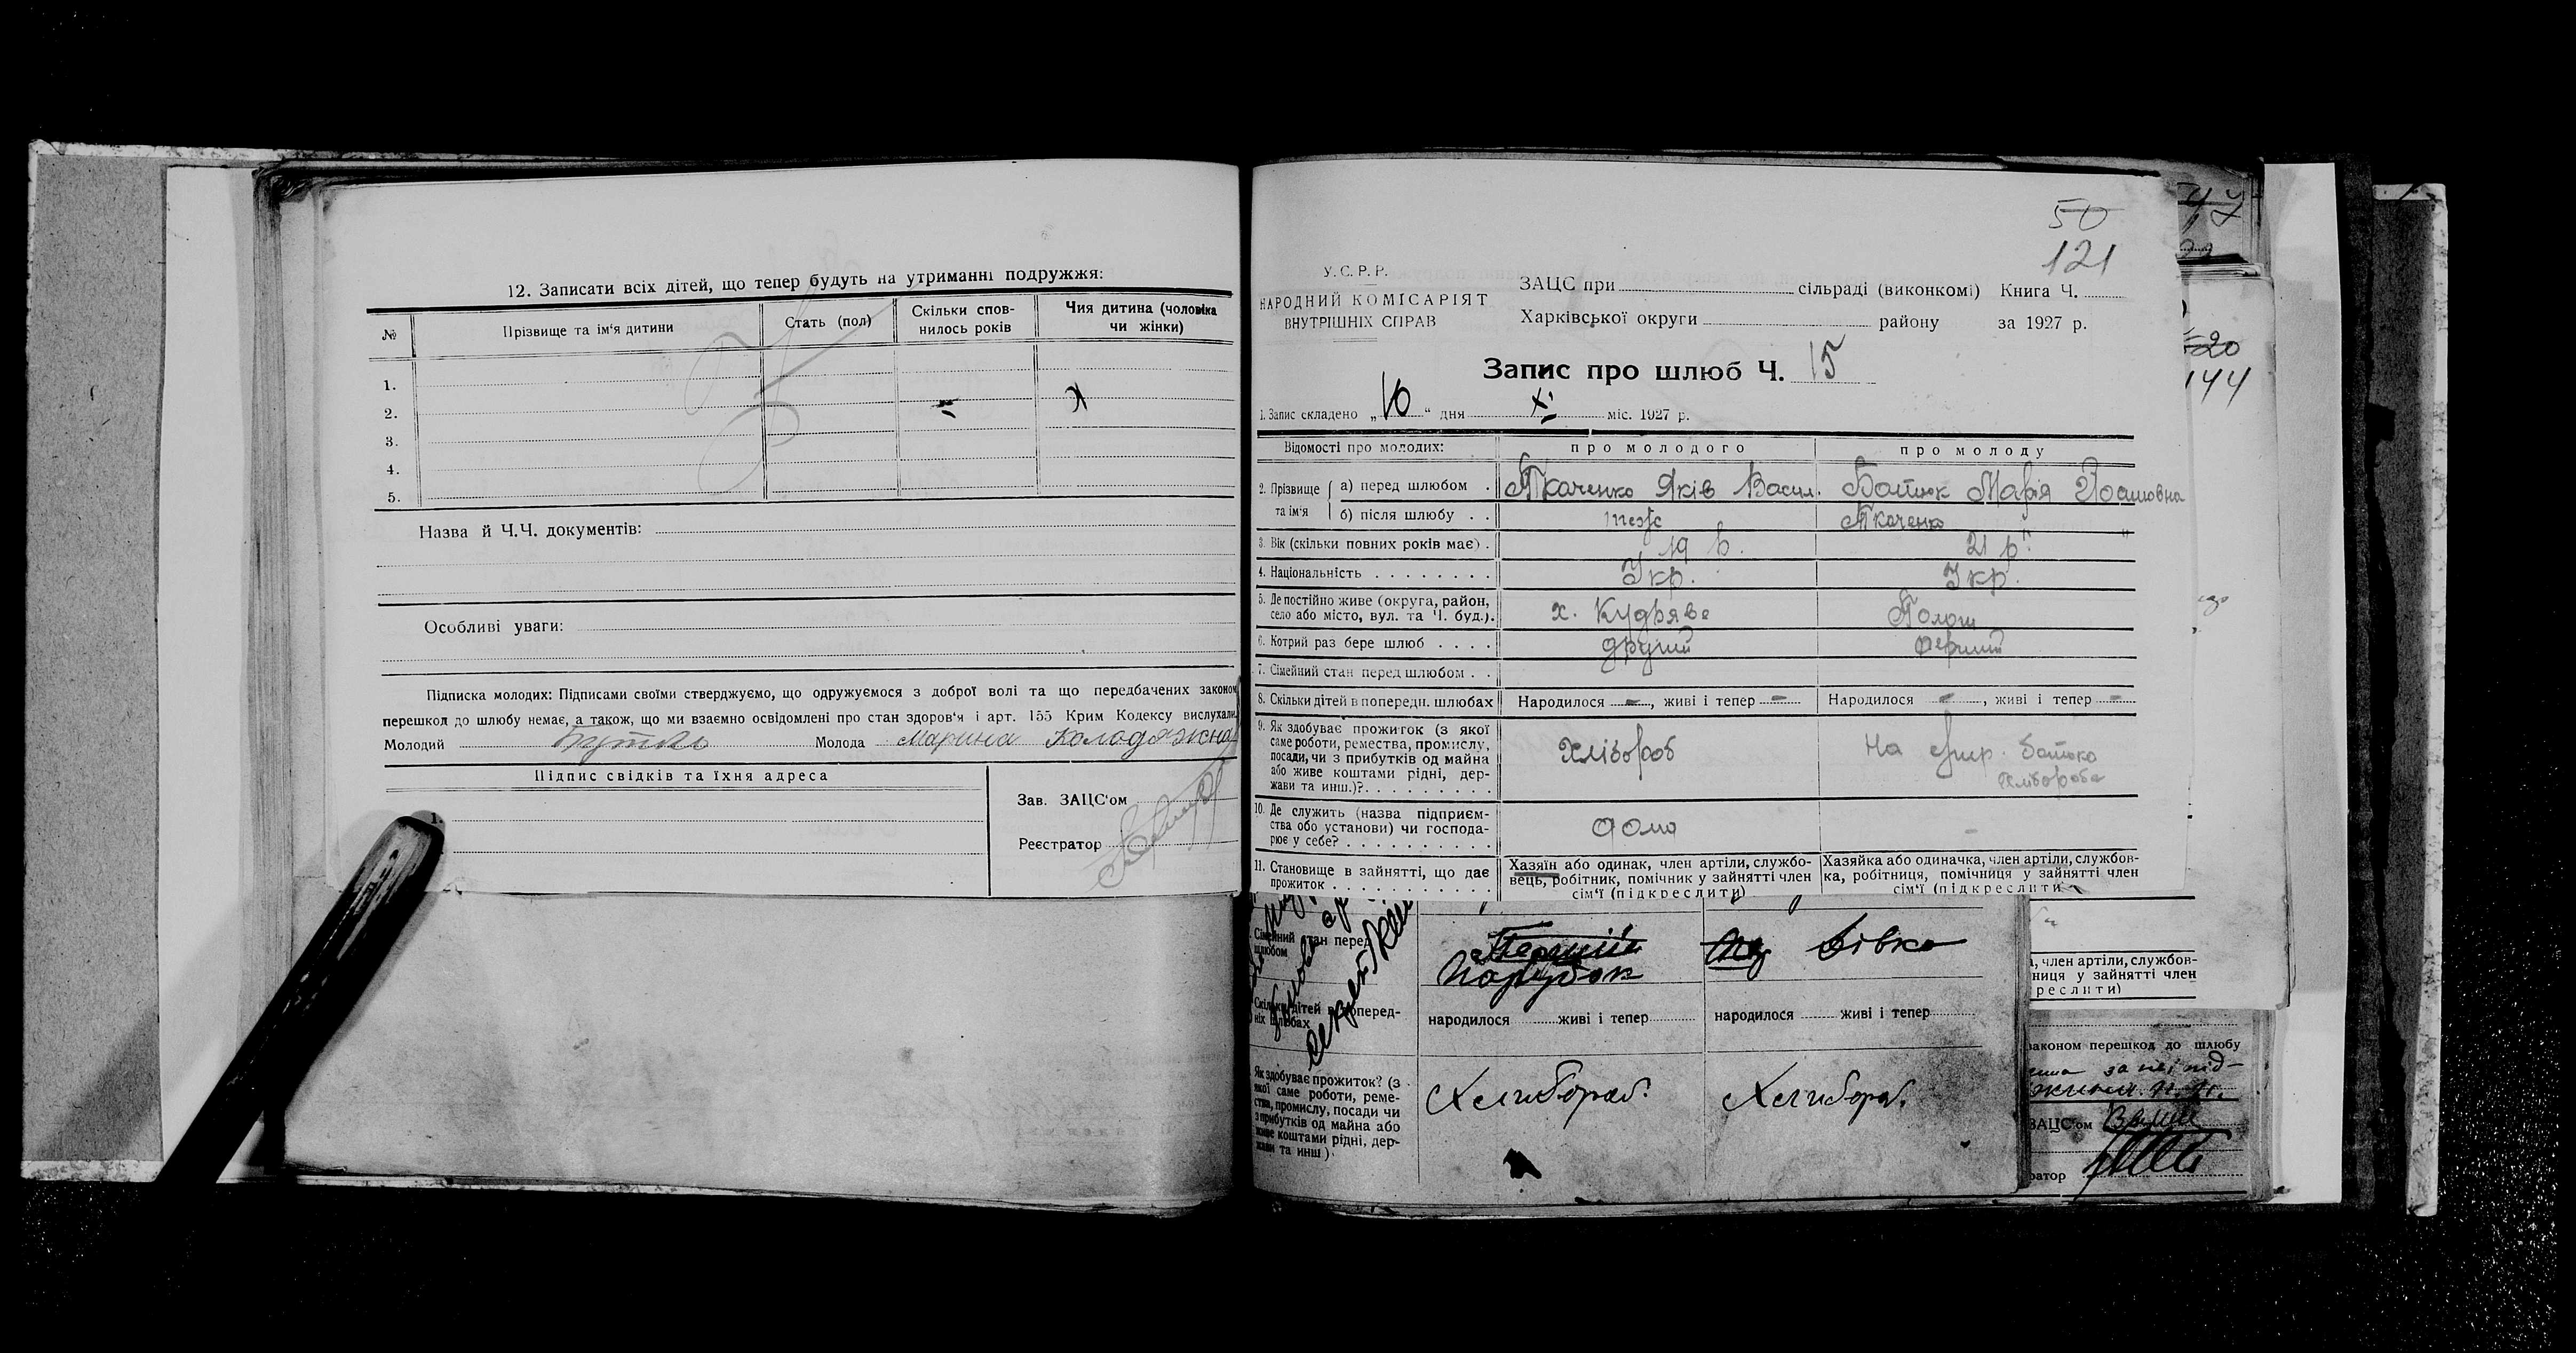 12. Записати всіх дітей, що тепер будуть на утриманні подружжя:
№ Прізвище та ім'я дитини Стать (пол) Скільки сповнилось років Чия дитина (чоловіка чи жінки)
1.
2.
3.
4.
5.
Назва й Ч.Ч. документів:
Особливі уваги:
Підписка молодих: Підписами своїми стверджуємо, що одружуємося з доброї волі та що передбачених законом
перешкод до шлюбу немає, а також, що ми взаємно освідомлені про стан здоров'я і арт. 155 Крим Кодексу вислухали.
Молодий Молода Марина Колодяжна
Підпис свідків та їхня адреса
1.
Зав. ЗАЦС'ом
Реєстратор
50
121
У.С.Р.Р.
НАРОДНИЙ КОМІСАРІЯТ
ВНУТРІШНІХ СПРАВ
ЗАЦС при сільраді (виконкомі) Книга Ч.
Харківської округи району за 1927 р.
Запис про шлюб Ч. 15
1. Запис складено „10“ дня XI міс. 1927 р.
Відомості про молодих: про молодого про молоду
2. Прізвище та ім'я а) перед шлюбом . Ткаченко Яків Васил. Батюк Марія
б) після шлюбу . . тоже Ткаченко
3. Вік (скільки повних років має) . 19 р. 21 р.
4. Національність . . . . . . . . Укр. Укр.
5. Де постійно живе (округа, район,
село або місто, вул. та Ч. буд.). х. Кудряве
6. Котрий раз бере шлюб . . . . другий перший
7. Сімейний стан перед шлюбом . .
8. Скільки дітей в попередн. шлюбах Народилося — , живі і тепер — Народилося — , живі і тепер —
9. Як здобуває прожиток (з якої
саме роботи, ремества, промислу,
посади, чи з прибутків од майна
або живе коштами рідні, держави та инш.)?. . . . . . . . . Хлібороб На батька
хлібороба
10. Де служить (назва підприємства або установи) чи господарює у себе? . . . . . . . . . . дома -
11. Становище в зайнятті, що дає
прожиток . . . . . . . . . . .
Хазяїн або одинак, член артіли, службовець, робітник, помічник у зайнятті член
сім'ї (підкреслити)
Хазяйка або одиначка, член артіли, службовка, робітниця, помічниця у зайнятті член
сім'ї (підкреслити)
Сімейний стан перед
шлюбом Перший Парубок Дівка
Скільки дітей в попередніх шлюбах народилося живі і тепер народилося живі і тепер
Як здобуває прожиток? (з
якої саме роботи, ремества, промислу, посади чи
з прибутків од майна або
живе коштами рідні, держави та инш.)
Хлибораб. Хлибораб.
20
144
, член артіли, службов-
ниця у зайнятті член
реслити)
законом перешкод до шлюбу
ЗАЦС'ом
ратор